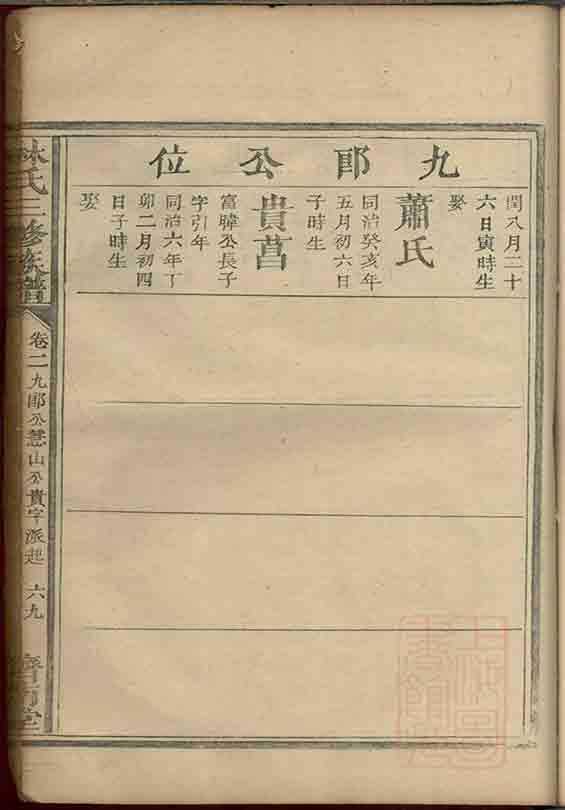 九郎公位
閏八月二十
六日寅時生
娶
蕭氏
同治癸亥年
五月初六日
子時生
貴菖
富暐公長子
字引年
同治六年丁
卯二月初四
日子時生
娶
林氏三修族譜
卷二九郎公慧山公貴字派起 六九
濟南堂